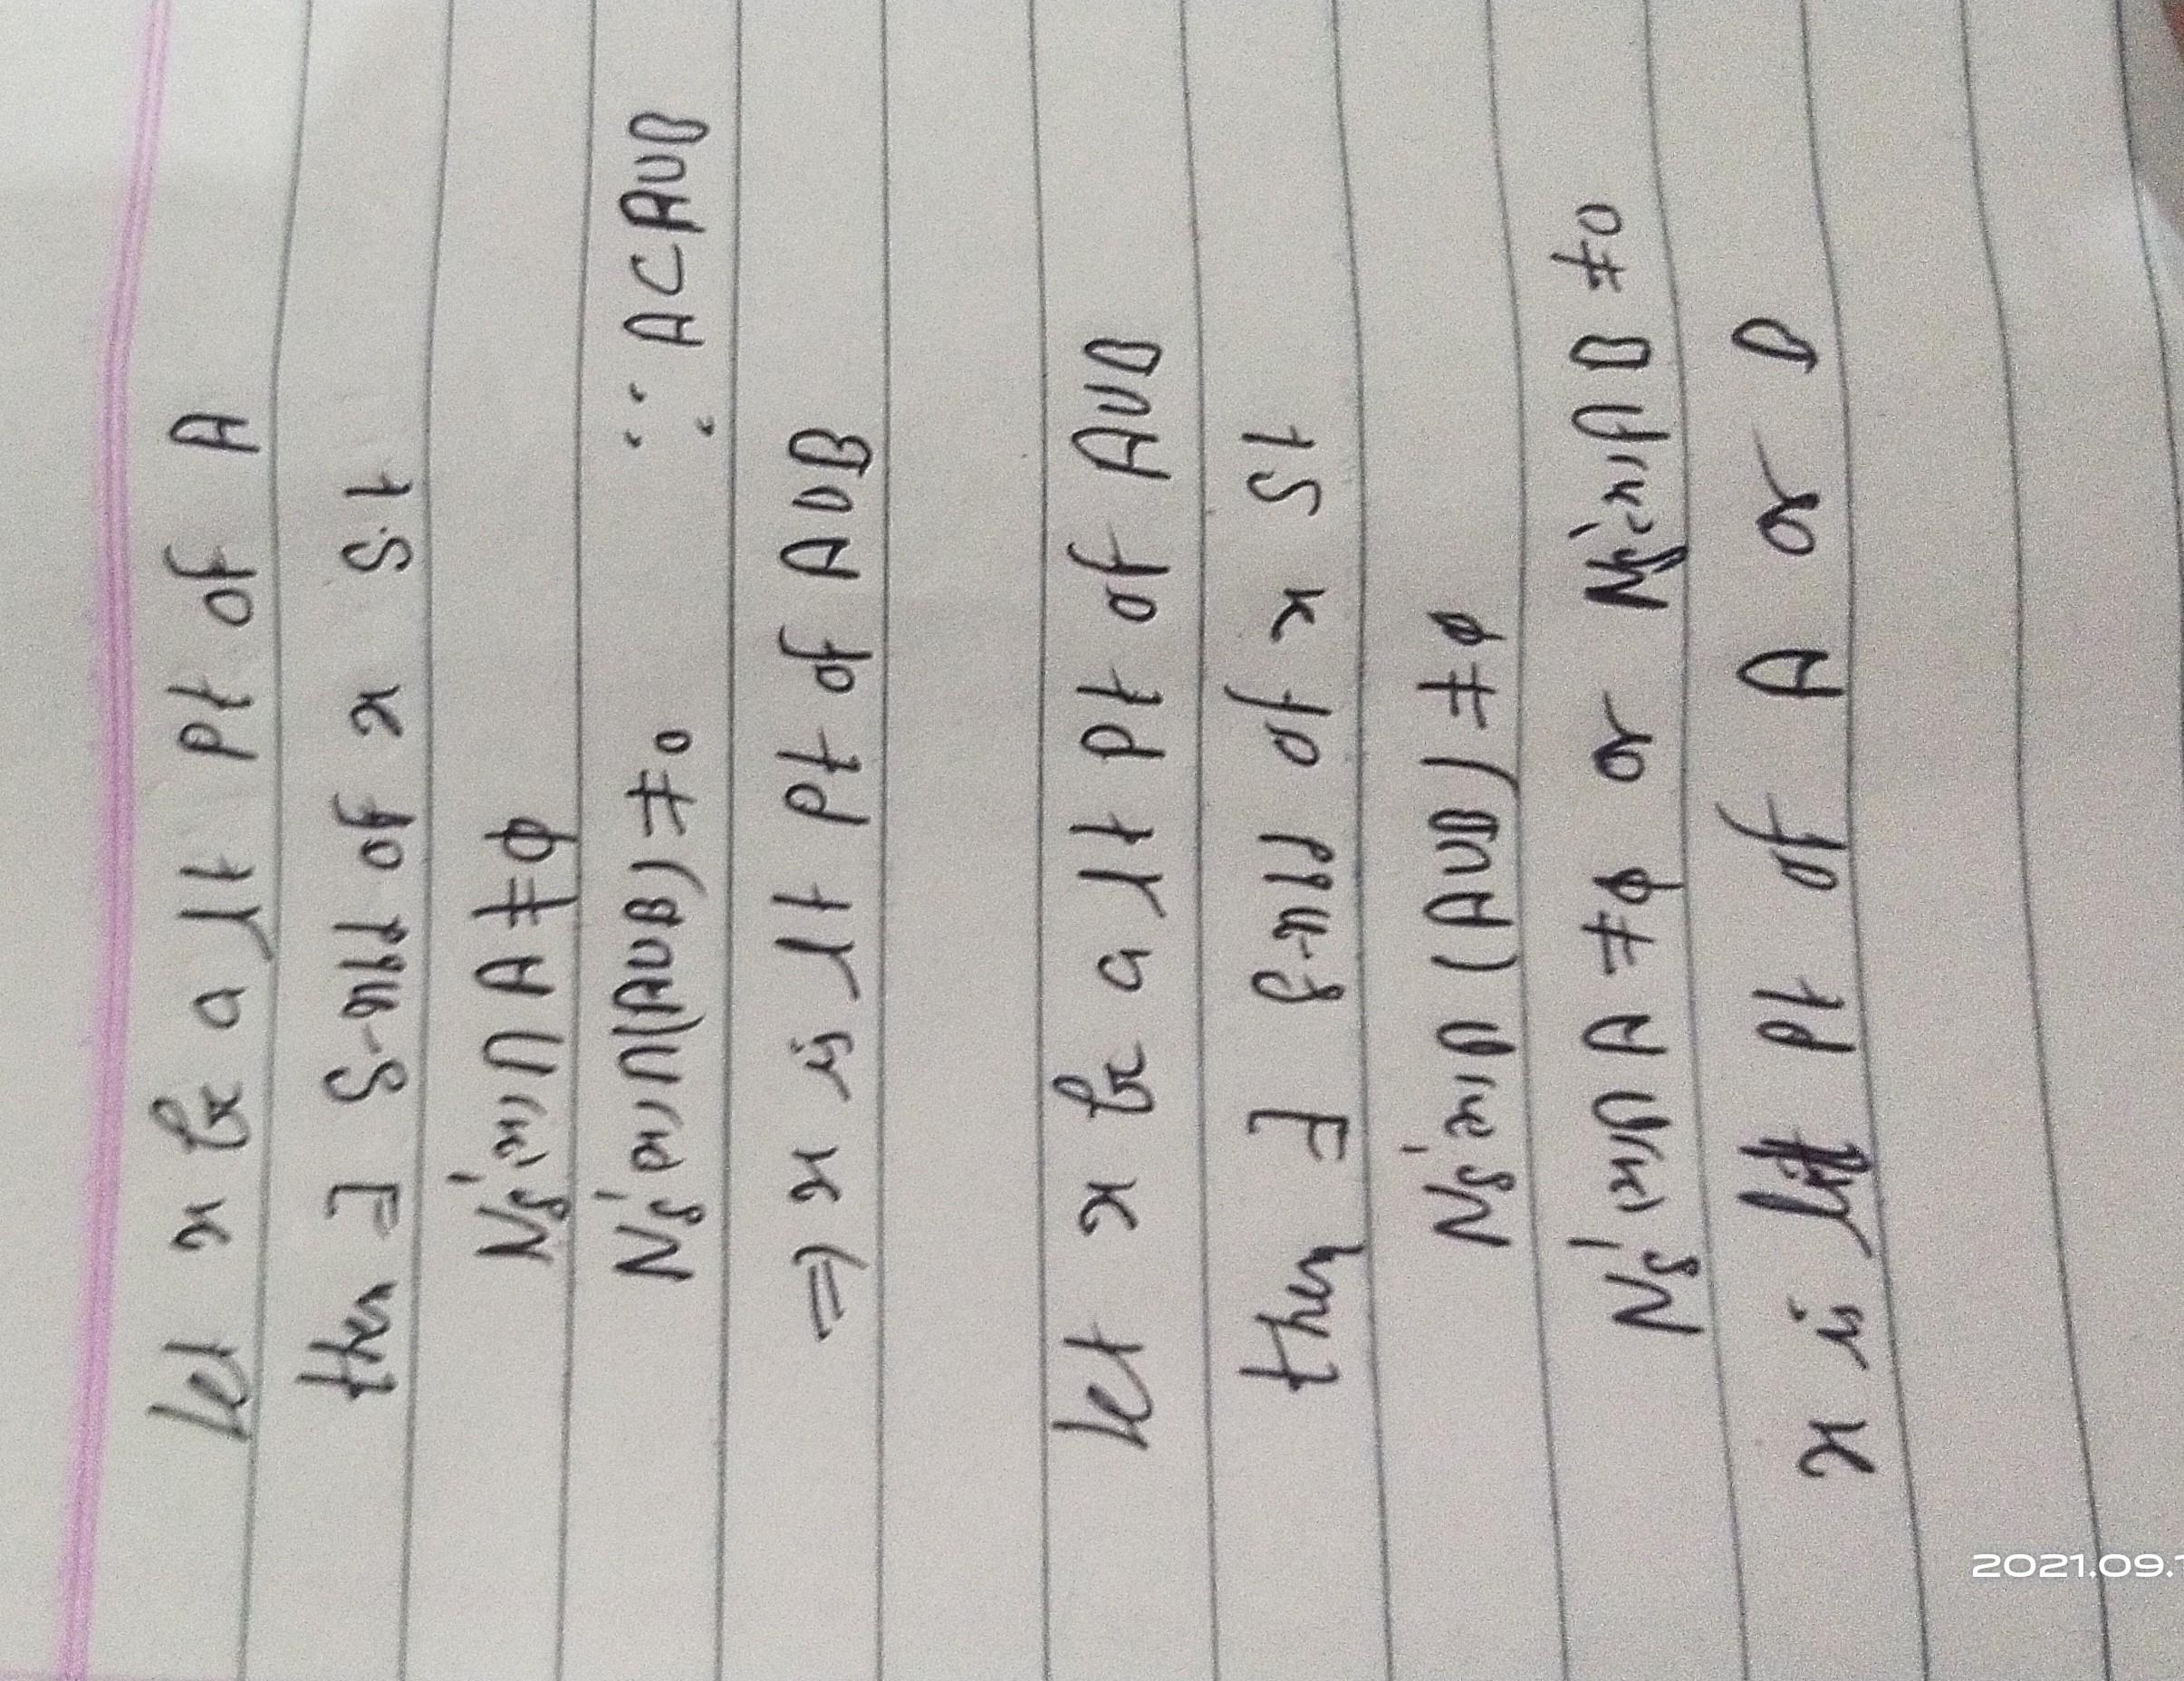 let x be a lt pt of A
then ∃ δ-nbd of x s.t
Nδ'(x) ∩ A ≠ φ
Nδ'(x) ∩ (A∪B) ≠ 0 ∵ A⊂A∪B
⇒ x is lt pt of A∪B
let x be a lt pt of A∪B
then ∃ δ-nbd of x st
Nδ'(x) ∩ (A∪B) ≠ φ
Nδ'(x) ∩ A ≠ φ or Nδ'(x) ∩ B ≠ 0
x is lt pt of A or B
2021.09.